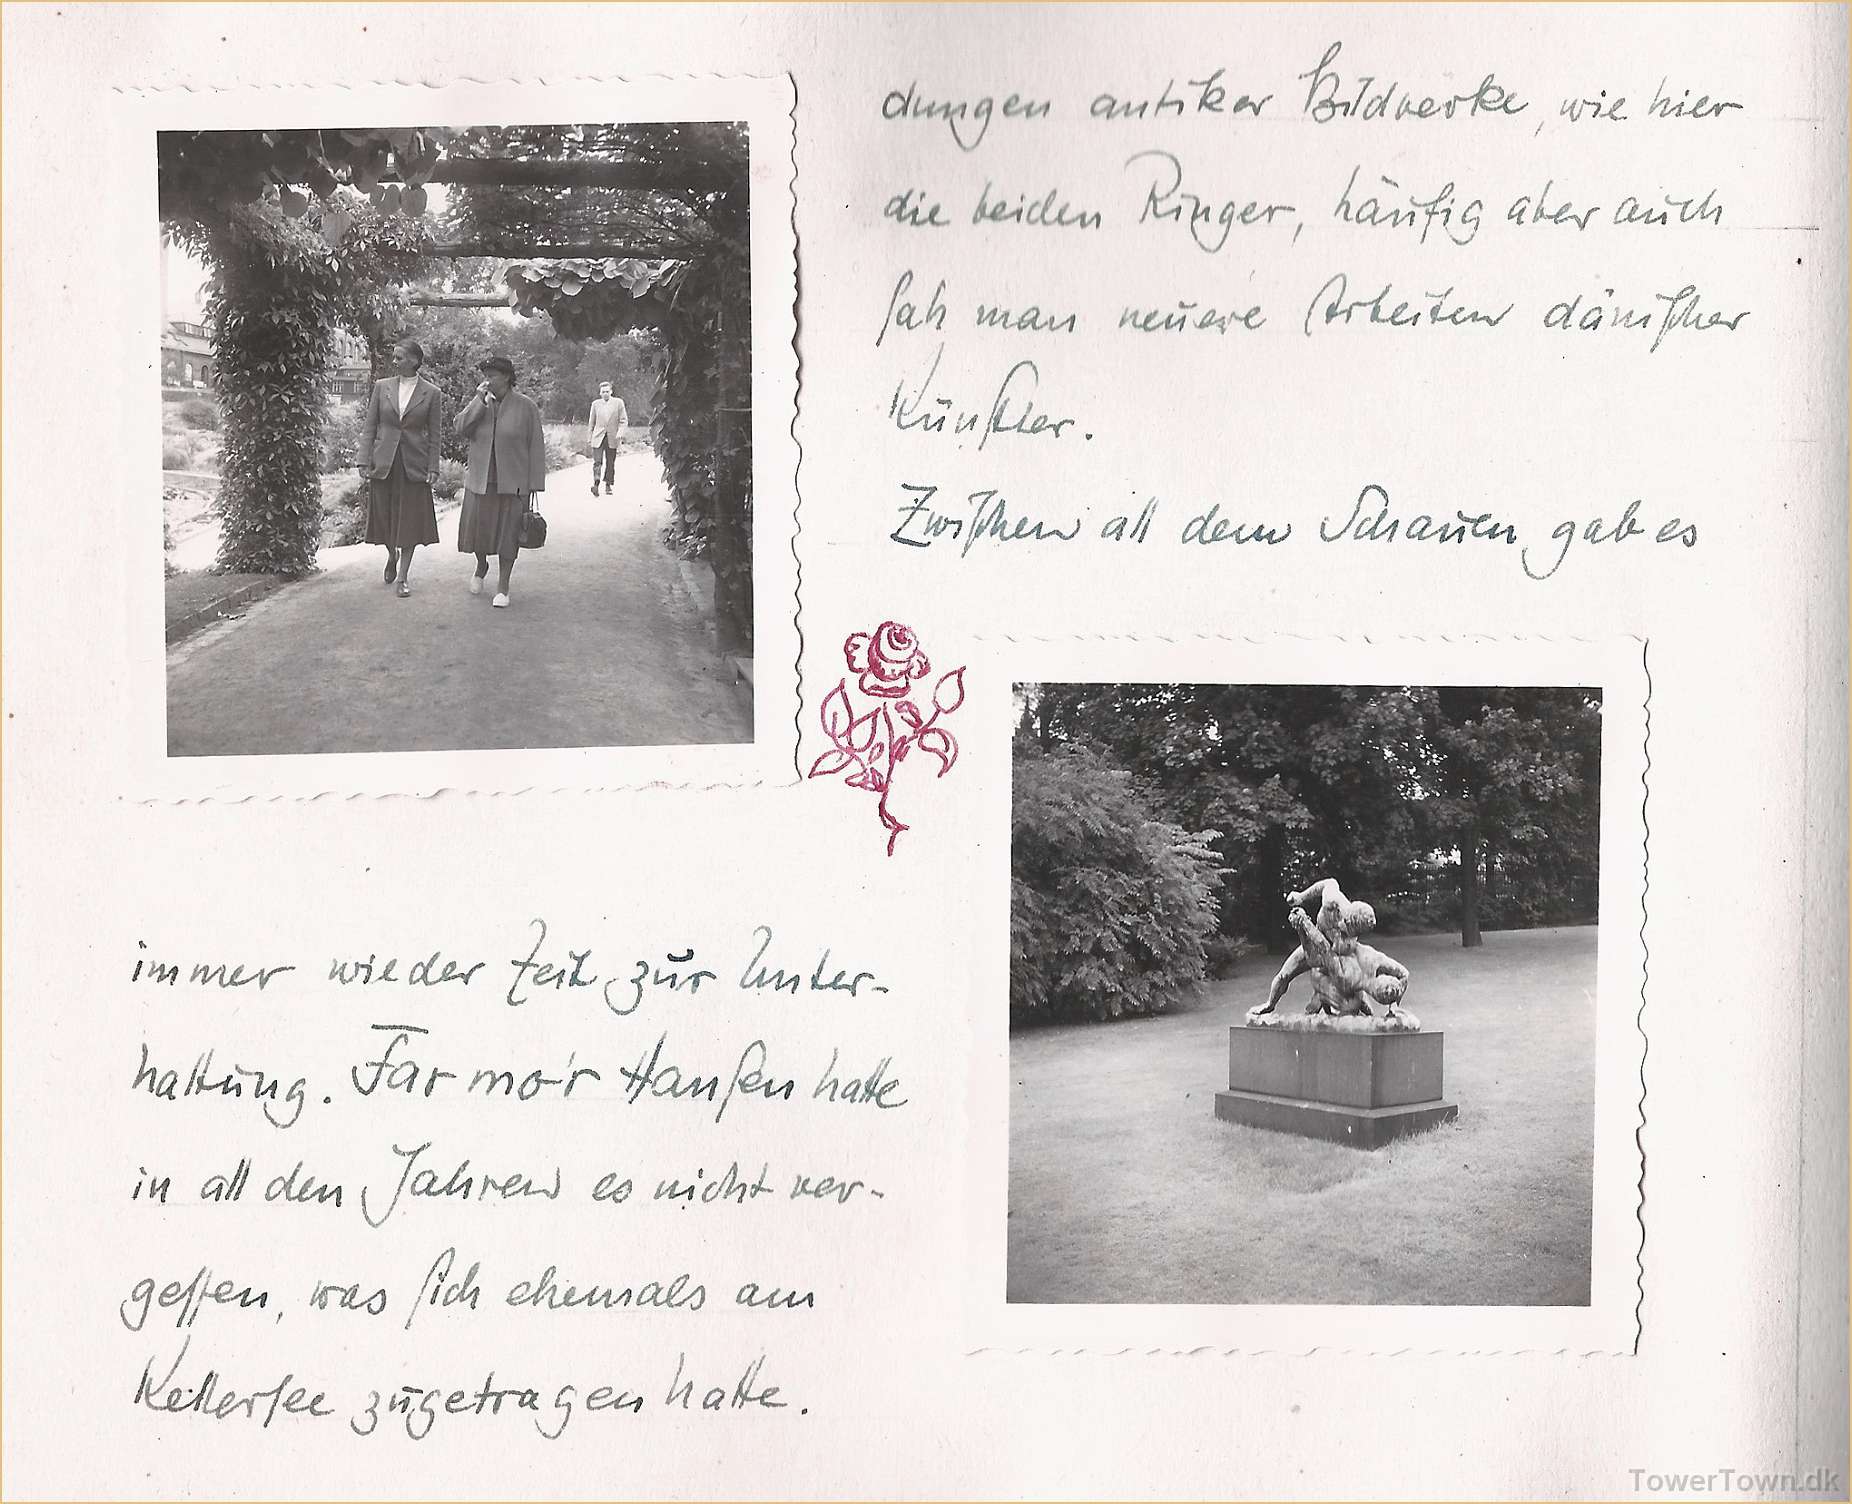 dungen antiker Bildwerke, wie hier
die beiden Ringer, häufig aber auch
sah man neuere Arbeiten dänischer
Künstler.
Zwischen all dem Schauen gab es
immer wieder Zeit zur Unter-
haltung. Far mo'r Hansen hatte
in all den Jahren es nicht ver-
gessen, was sich ehemals am
Kellersee zugetragen hatte.
TowerTown.dk